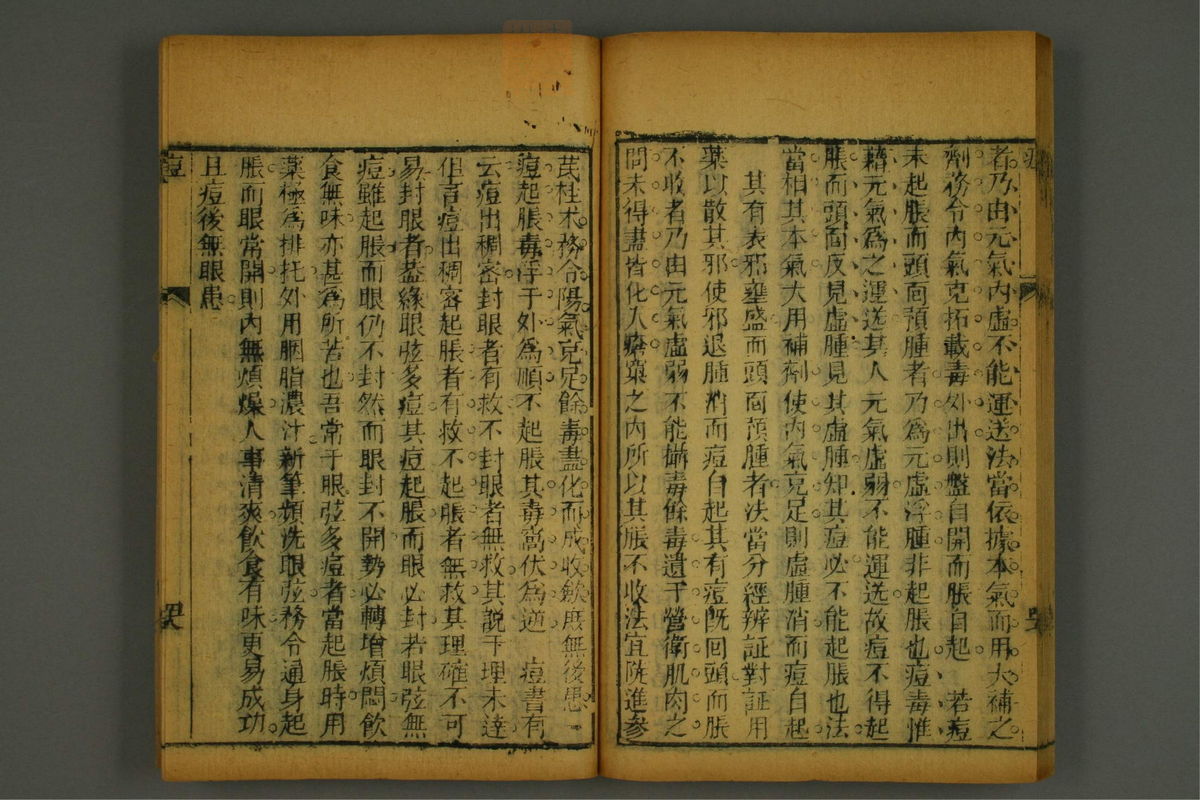 者乃由元氣內虛不能運送法當依據本氣而用大補之
劑務令內氣克拓載毒外出則盤自開而脹自起　若痘
未起脹而頭面預腫者乃為元虛浮腫非起脹也痘毒惟
藉元氣為之運送其人元氣虛弱不能運送故痘不得起
脹而頭面反見虛腫見其虛腫知其痘必不能起脹也法
當相其本氣大用補劑使內氣克足則虛腫消而痘自起
其有表邪壅盛而頭面預腫者法當分經辨証對証用
藥以散其邪使邪退腫消而痘自起其有痘既回頭而脹
不收者乃由元氣虛弱不能攝毒餘毒遺于營衛肌肉之
間未得盡皆化入瘡窠之內所以其脹不收法宜陡進參
芪桂朮務令陽氣克足餘毒盡化而成收斂庶無後患一
痘起脹毒浮于外為順不起脹其毒蒿伏為逆　痘書有
云痘出稠密封眼者有救不封眼者無救其說于理未達
但言痘出稠密起脹者有救不起脹者無救其理確不可
易封眼者葢緣眼弦多痘其痘起脹而眼必封若眼弦無
痘雖起脹而眼仍不封然而眼封不開勢必轉增煩悶飲
食無味亦甚為所苦也吾常于眼弦多痘者當起脹時用
藥極為排托外用胭脂濃汁新筆頻洗眼弦務令通身起
脹而眼常開則內無煩燥人事清爽飲食有味更易成功
且痘後無眼患
痘